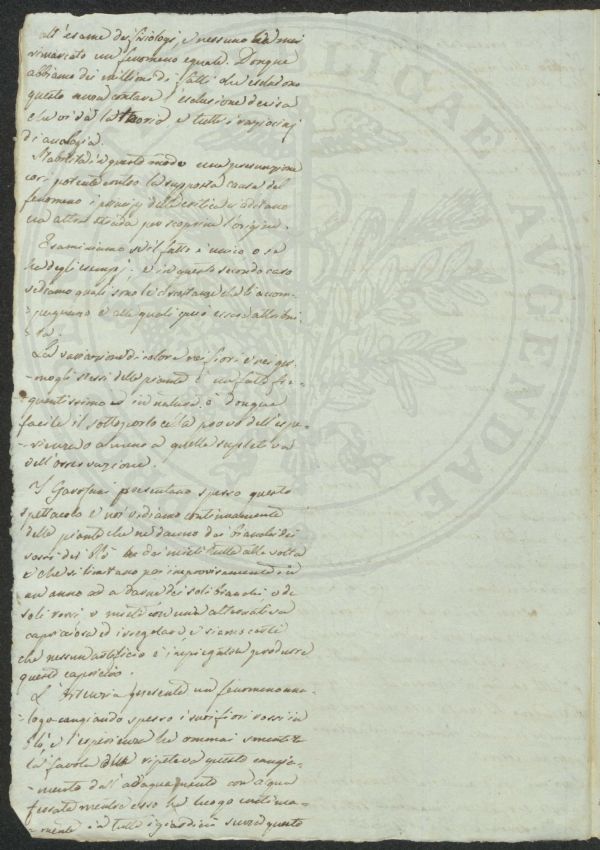 all'esame dei fisiologi, e nessuno ha mai
rimarcato un fenomeno eguale. Dunque
abbiamo dei millioni di fatti che escludono
questo senza contare l'esclusione decisa
che vi dà la teoria, e tutti i raziocinj
di analogia.
Stabilita in questo modo una presunzione
così potente contro la supposta causa del
fenomeno i principj della critica ci additano
una altra strada per scoprirne l'origine.
Esaminiamo se il fatto è unico o se
ha degli esempj, e in questo secondo caso
vediamo quali sono le circostanze che li accom-
-pagnano e alle quali puo essere attribui-
-ta.
La variazione di colore nei fiori e nei ger-
-mogli stessi delle piante è un fatto fre-
-quentissimo in natura, è dunque
facile il sottoporlo alla prova dell'espe-
-rienza o almeno a quella supletiva
dell'osservazione.
I Garofani presentano spesso questo
spettacolo e noi vediamo continuamente
delle piante che ne danno dei bianchi dei
rossi dei blò dei misti tutti alla volta
e che si limitano poi improvvisamente in
un anno ad a darne dei soli bianchi, o de
soli rossi, o misti con una alternativa
capricciosa ed irregolare e siamo certi
che nessun artificio è impiegato a produrre
questo capriccio.
L'Ortensia presenta un fenomeno ana-
-logo cangiando spesso i suoi fiori rossi in
blò, e l'esperienza ha ommai smentita
la favola che ripeteva questo cangia-
-mento dall'adaquamento con aqua
ferrata mentre esso ha luogo continua-
-mente in tutti i giardini senza questo